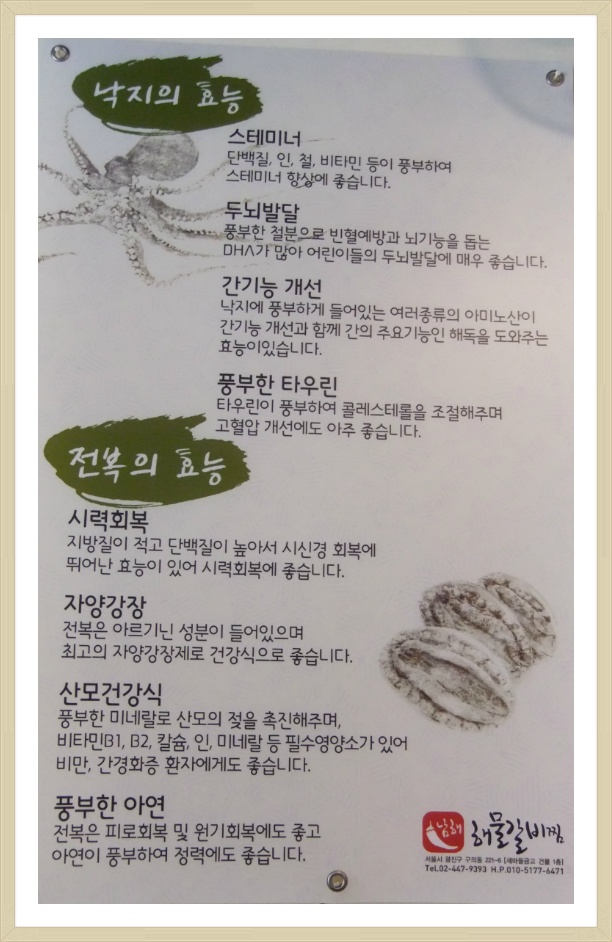 낙지의 효능
스테미너
단백질, 인, 철, 비타민 등이 풍부하여
스테미너 향상에 좋습니다.
두뇌발달
풍부한 철분으로 빈혈예방과 뇌기능을 돕는
DHA가 많아 어린이들의 두뇌발달에 매우 좋습니다.
간기능 개선
낙지에 풍부하게 들어있는 여러종류의 아미노산이
간기능 개선과 함께 간의 주요기능인 해독을 도와주는
효능이있습니다.
풍부한 타우린
타우린이 풍부하여 콜레스테롤을 조절해주며
고혈압 개선에도 아주 좋습니다.
전복의 효능
시력회복
지방질이 적고 단백질이 높아서 시신경 회복에
뛰어난 효능이 있어 시력회복에 좋습니다.
자양강장
전복은 아르기닌 성분이 들어있으며
최고의 자양강장제로 건강식으로 좋습니다.
산모건강식
풍부한 미네랄로 산모의 젖을 촉진해주며,
비타민B1, B2, 칼슘, 인, 미네랄 등 필수영양소가 있어
비만, 간경화증 환자에게도 좋습니다.
풍부한 아연
전복은 피로회복 및 원기회복에도 좋고
아연이 풍부하여 정력에도 좋습니다.
남해 해물갈비찜
서울시 광진구 구의동 221-6 [새마을금고 건물 1층]
Tel.02-447-9393 H.P.010-5177-6471